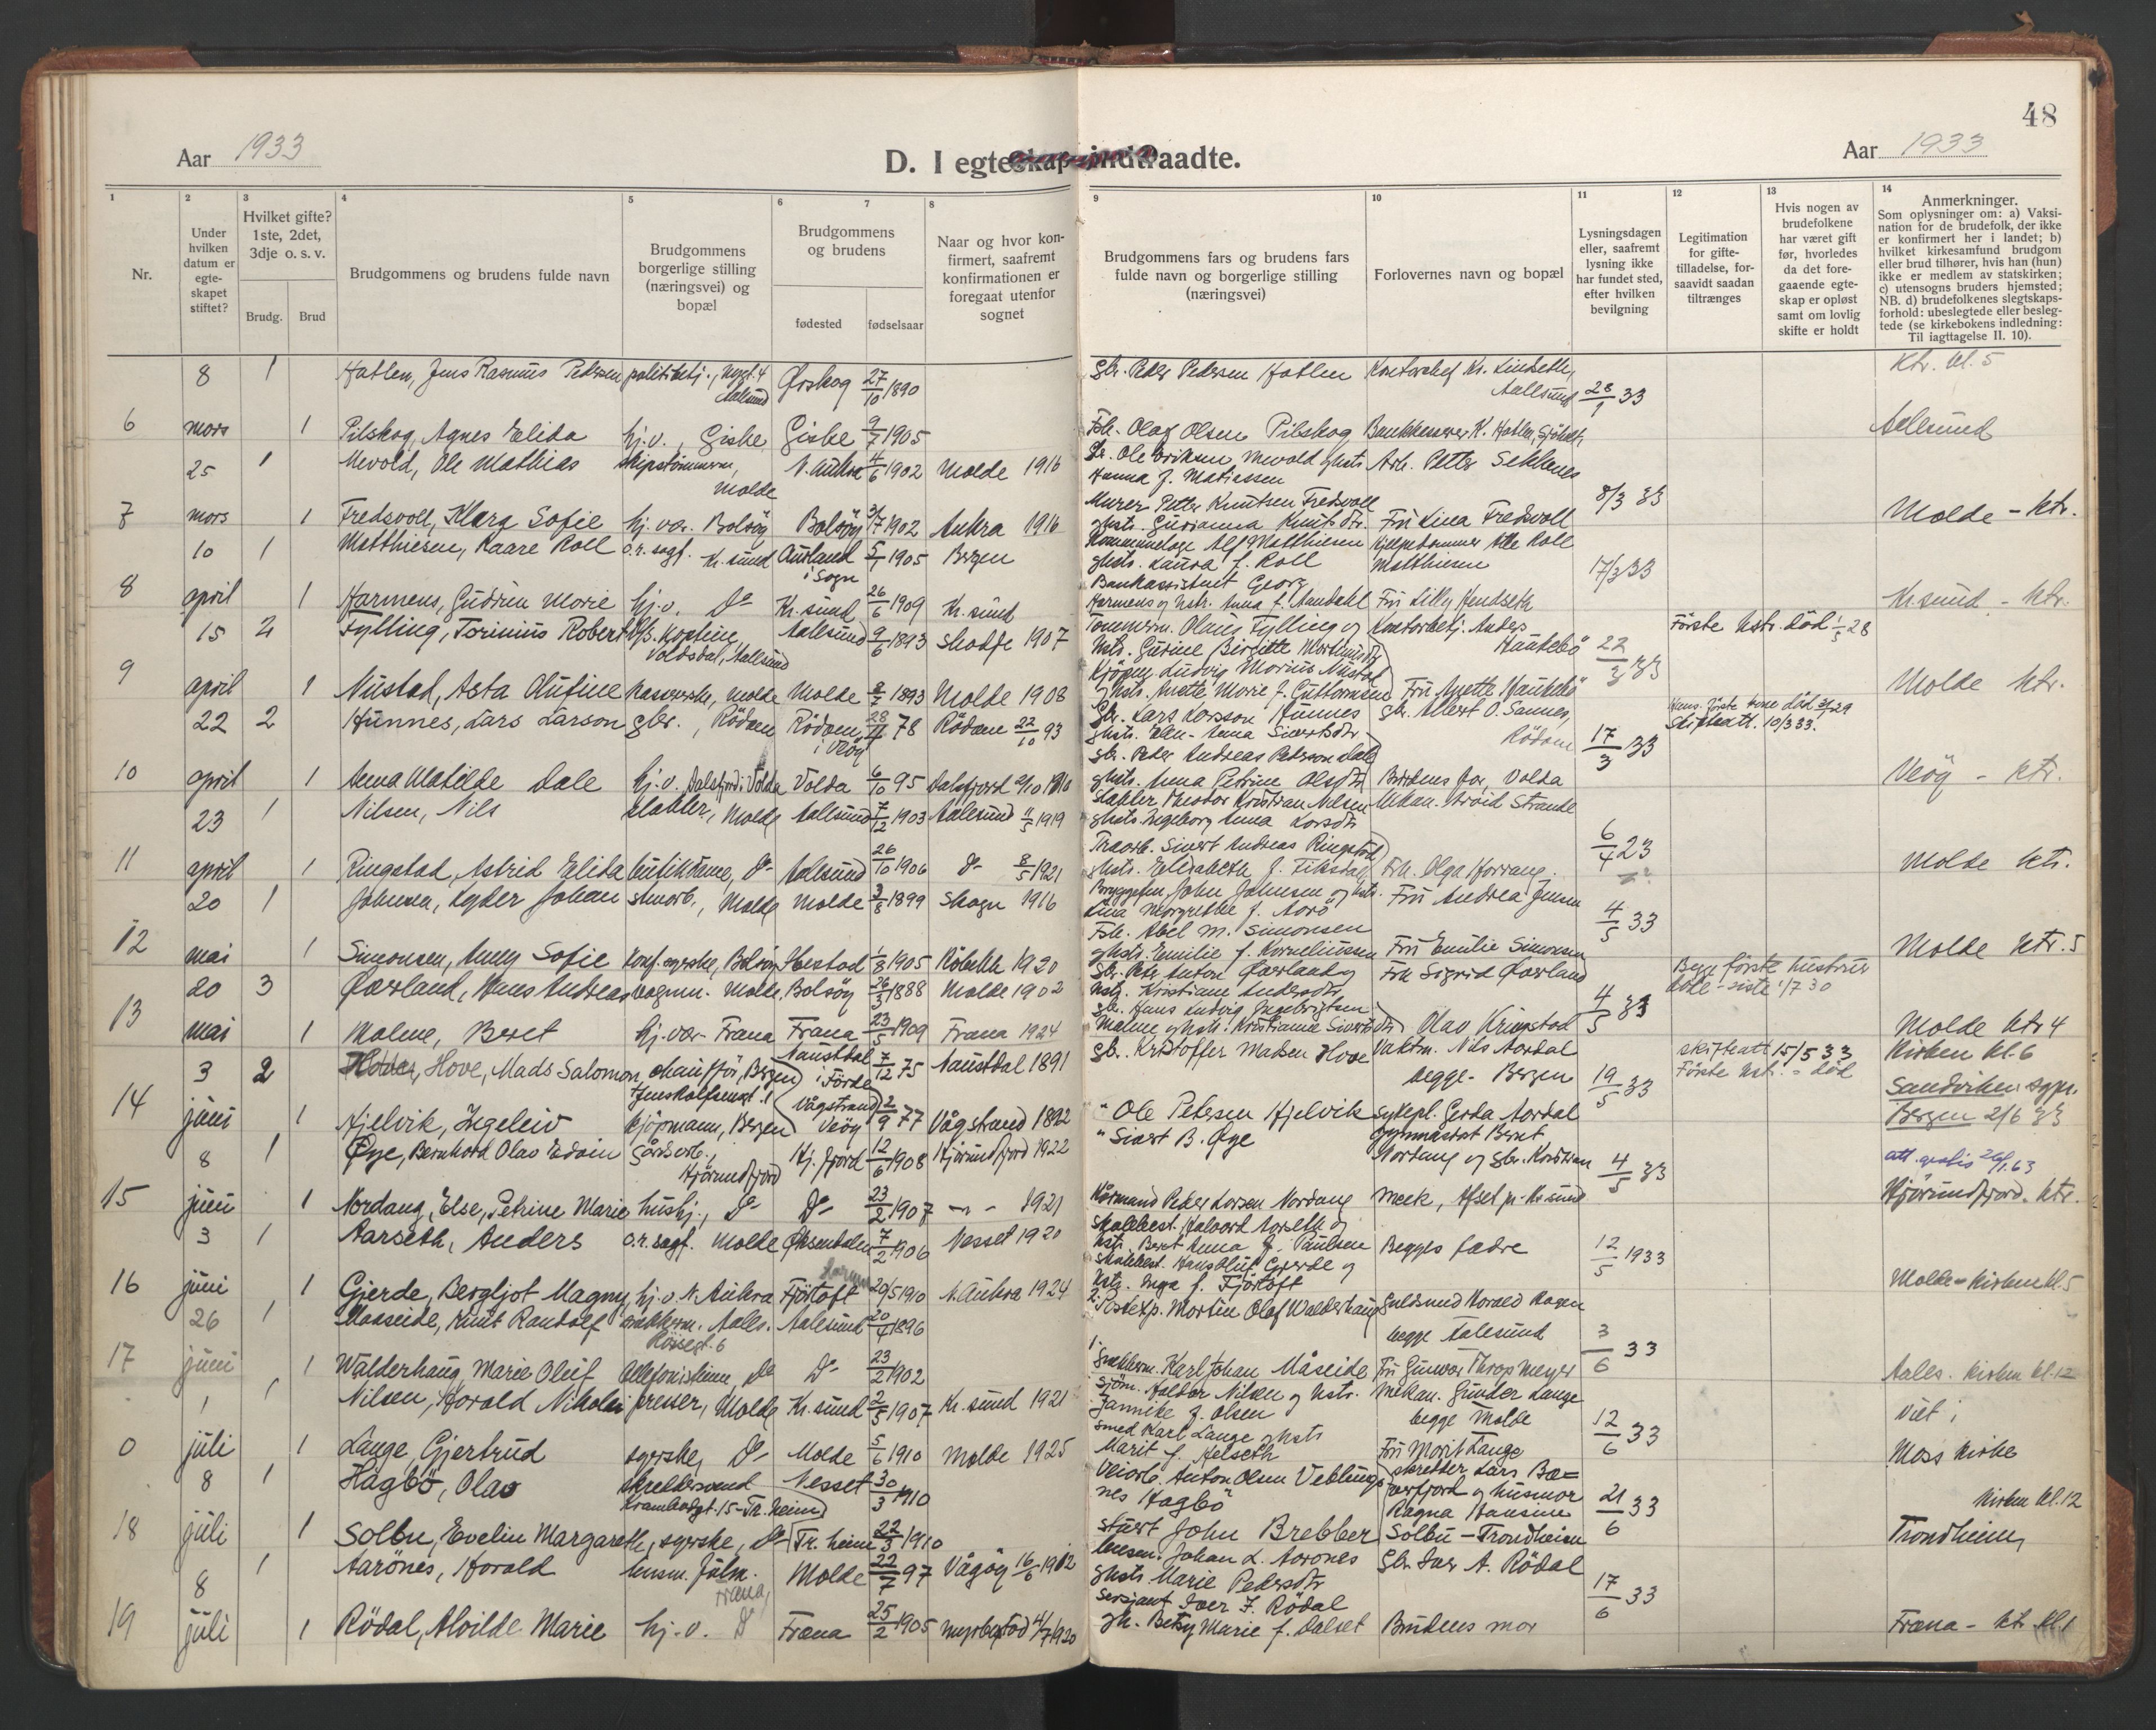 48
Aar 1933
D. I egteskap indtraadte.
Aar 1933
1 2 3 4 5 6 7 8 9 10 11 12 13 14
Nr.
Under hvilken datum er egte-skapet stiftet?
Hvilket gifte? 1ste, 2det, 3dje o. s. v.
Brudg. Brud
Brudgommens og brudens fulde navn
Brudgommens borgerlige stilling (næringsvei) og bopæl
Brudgommens og brudens
fødested fødselsaar
Naar og hvor kon-firmert, saafremt konfirmationen er foregaat utenfor sognet
Brudgommens fars og brudens fars fulde navn og borgerlige stilling (næringsvei)
Forlovernes navn og bopæl
Lysningsdagen eller, saafremt lysning ikke har fundet sted, efter hvilken bevilgning
Legitimation for gifte-tilladelse, for-saavidt saadan tiltrænges
Hvis nogen av brudefolkene har været gift før, hvorledes da det fore-gaaende egte-skap er opløst samt om lovlig skifte er holdt
Anmerkninger.
Som oplysninger om: a) Vaksi-nation for de brudefolk, der ikke er konfirmert her i landet; b) hvilket kirkesamfund brudgom eller brud tilhører, hvis han (hun) ikke er medlem av statskirken; c) utensogns bruders hjemsted; NB. d) brudefolkenes slegtskaps-forhold: ubeslegtede eller besleg-tede (se kirkebokens indledning: Til iagttagelse II. 10).
8 1 Hatlen, Jens Rasmus Pedersen politibetj., Aalesund Ørskog 27/10 1890 Gbr. Peder Pedersen Hatlen Kontorchef Kr. Lindseth, Aallsund 28/1 33 Ktr. kl. 5
6 mars 1 Pilskog, Agnes Elida hj.v., Giske Giske 9/7 1905 Fsk. Olaf Olsen Pilskog K. Hatlen, Aalesund
25 1 Mevold, Ole Mathias skipstømmerm., Molde N. Aukra 4/6 1902 Molde 1916 Gbr. Ole Eriksen Mevold og hstr. Hanna f. Matiassen Arb. Petter Sekkenes 8/3 33
7 mars 1 Fredsvoll, Klara Sofie hj. vær. Bolsøy Bolsøy 1902 Aukra 1916 Murer Peter Knutsen Fredsvoll og hstr. Gurianna Knutsdtr. Fru Lina Fredsvoll Molde - ktr.
10 1 Matthiesen, Kaare Roll o.r. sagf. Kr. sund Aurland i Sogn 5/1 1905 Bergen Kommunelæge Alf Matthiesen og hstr. Laura f. Roll Hjelpedommer Atle Roll Matthiesen 17/3 33
8 april 1 Harmens, Gudrun Marie hj.v. Do Kr. sund 26/6 1909 Kr. sund Bankassistent Georg Harmens og hstr. Anna f. Aandahl Fru Lilly Hendseth Kr.sund - ktr.
15 2 Fylling, Torinius Robert Voldsdal, Aallsund Aallesund 9/6 1893 Skodje 1907 Tømmerm. Olaus Fylling og hstr. Gurine Birgitte Martinusdtr. Kontorbetj. Anders Haukebø 22/3 33 Første hstr. død 1/5 28
9 april 1 Nustad, Asta Olufine kasserske, Molde Molde 1893 Molde 1908 Kjøpm. Ludvig Marius Nustad og hstr. Mette Marie f. Guttormsen Fru Anette Haukebø Molde ktr.
22 2 Hunnes, Lars Larson gbr., Rødven Rødven i Veøy 28/11 78 Rødven 22/10 93 Gbr. Lars Larsson Hunnes og hstr. Elen-Anna Sivertsdtr Gbr. Albert O. Sannes, Rødven 17/3 33 Hans første kone død 29 Skifteatt. 10/3 33.
10 april 1 Anna Matilde Dale hj.v. Dalsfjord i Volda Volda 6/10 95 Dalsfjord 1910 Gbr. Peder Andreas Pederson Dale og hstr. Anna Petrine Olsdtr Brudens far, Volda Veøy - ktr.
23 1 Nilsen, Nils stabler, Molde Aallsund 7/12 1903 Aalesund 11/5 1919 Stabler Theodor Kristian Nilsen og hstr. Ingeborg Anna Larsdtr Mekan. Arvid Strande 6/4 23
11 april 1 Ringstad, Astrid Elida butikdame, Do Aallsund 26/10 1906 Do 8/5 1921 Traarb. Sivert Andreas Ringstad og hstr. Elisabeth f. Fiksdal Frk. Olga Horvang. Molde ktr.
20 1 Johnsen, Lyder Johan skoarb., Molde Molde 3/8 1899 Skogn 1916 Bryggefm. John Johnsen og hstr. Lina Margrethe f. Aarø Fru Andrea Jensen 4/5 33
12 mai 1 Simonsen, Anny Sofie konf.syerske, Bolsøy Hestad 1/8 1905 Røbekk 1920 Fsk. Abel M. Simonsen og hstr. Emilie f. Korneliussen Fru Emilie Simonsen Molde ktr. 5
20 3 Øverland, Hans Andreas vognm. Molde, Bolsøy 26/3 1888 Molde 1902 Gbr. Petr. Anton Øverland og hstr. Kristiane Andersdtr Frk Sigrid Øverland 4/5 33 Begge første hustruer døde - siste 1/7 30
13 mai 1 Malme, Beret hj. vær- Fræna Fræna 23/5 1909 Fræna 1924 Gbr. Hans Ludvig Ingebrigtsen Malme og hstr. Kristianna Sivertsdtr Olav Kringstad Molde ktr 4
3 2 Hove, Mads Salomon, chauffør, Bergen Naustdal i Førde 7/12 75 Naustdal 1891 Gbr. Kristoffer Madsen Hove Vaktm. Nils Aardal begge - Bergen 19/5 33 skifteatt 15/5 33 Første hstr. - død Kirken kl. 6 Sandviken sogn.
14 juni 1 Hjelvik, Ingeleiv kjøpmann, Bergen Vågstrand Veøy 2/9 77 Vågstrand 1892 " Ole Petersen Hjelvik sykepl. Gerda Aardal Bergen 2/6 33
8 1 Øye, Bernhard Olav Edvin gårdsarb., Hjørundfjord Hj. fjord 12/6 1908 Hjørundfjord 1922 " Sivert B. Øye Gymnasiast Bernt Nordang og gbr. Kristian 4/5 33 att. gratis 26/1.63
15 juni 1 Nordang, Else, Petrine Marie hushj., Do Do 23/2 1907 -"- 1921 Kårmand Peder Larsen Nordang Meek, Ofset pr. Kr.sund Hjørundfjord. ktr.
3 1 Aarseth, Anders o.r. sagf. Molde Øksendalen 7/2 1906 Nesset 1920 Skolebest. Halvard Aarseth og hstr. Beret Anna f. Paulsen Begges fædre 12/5 1933
16 juni 1 Gjerde, Bergljot Magny, hj.v. N. Aukra Fjørtoft 20/5 1910 N. Aukra 1924 Skolebest. Hans Oluf Gjerde og hstr. Inga f. Fjørtoft Molde - Kirken kl. 5
26 1 Maaseide, Knut Randolf snekkerm. Aales. Aalesund 20/4 1896 Postexp. Martin Olaf Walderhaug Guldsmed Harald Ragen begge Aalesund 3/6 33
17 juni 1 Walderhaug, Marie Oluf Do Do 23/2 1902 Snekkerm. Karl Johan Måseide Fru Gunvor Thrap Meyer Aales. Kirken kl. 12
1 1 Nilsen, Harald Nikolai presser, Molde Kr. sund 2/5 1907 Kr. sund 1921 Sjøm. Haldor Nilsen og hstr. Jannike f. Olsen Mekan. Gunder Lange begge Molde 12/6 33 Viet i
0 juli 1 Lange, Gjertrud syerske, Do Molde 5/6 1910 Molde 1925 Smed Karl Lange og hstr Marit f. Helseth Fru Marit Lange Moss kirke
8 1 Hagbø, Olav skreddersvend Tr. heim Nesset 30/3 1910 Veiarb. Anton Olsen Hagbø skredder Lars og husmor Ragna Hansine 21/6 33 Kirken kl. 12
18 juli 1 Solbu, Evelin Margareth, syerske, Do Tr. heim 22/3 1910 stuert John Brebber Solbu - Trondheim Trondheim
8 1 Aarønes, Harald lensm. fulm. Fræna, Molde 22/7 97 Vågøy 16/6 1912 lensm. Johan L. Aarønes og hstr. Marie Pedersdtr Gbr. Iver A. Rødal 17/6 33
19 juli 1 Rødal, Alvilde Marie hj.v. Do Fræna 25/2 1905 Myrbostad 4/7 1920 Sersjant Iver J. Rødal og h. Betsy Marie f. Dalset Brudens mor Fræna - ktr. kl. 1